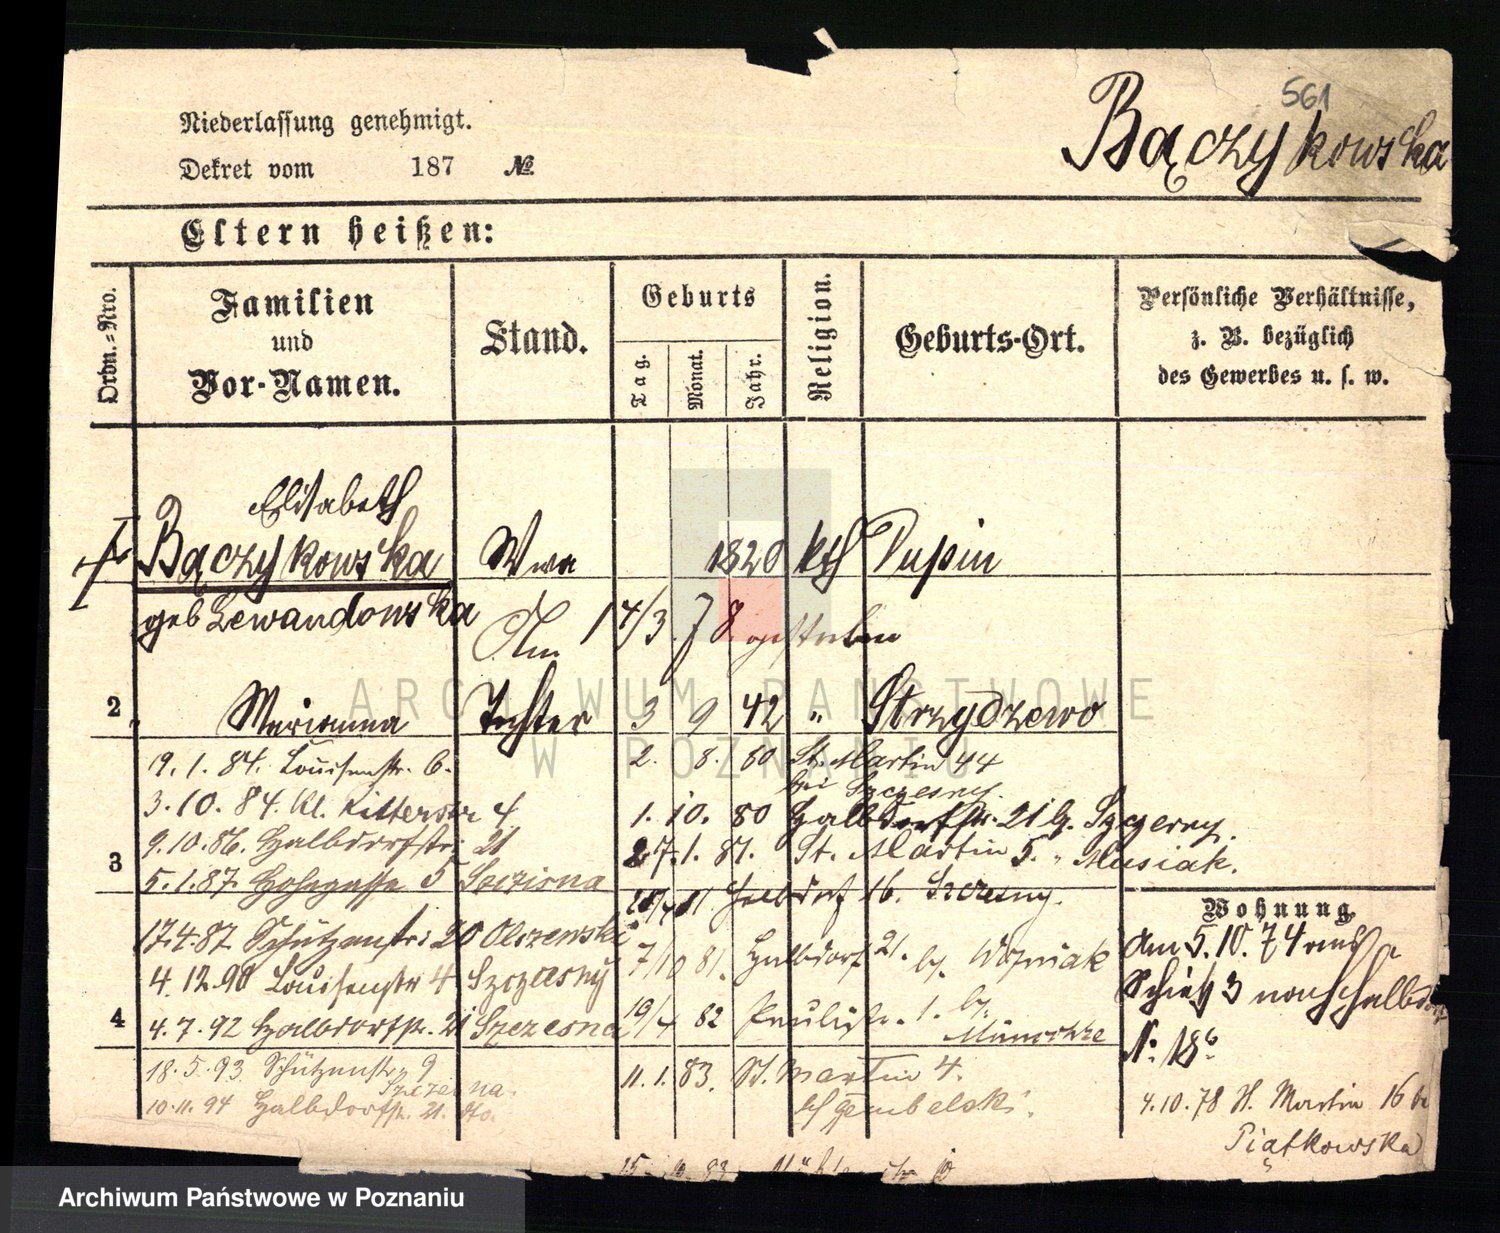 561
Bączykowska
Niederlassung genehmigt.
Dekret vom 187 №
Eltern heißen:
Ordn.-Nro.
Familien
und
Vor-Namen.
Stand.
Geburts
Tag.
Monat.
Jahr.
Religion.
Geburts-Ort.
Persönliche Verhältnisse,
z. B. bezüglich
des Gewerbes u. s. w.
Elisabeth
Bączykowska Wwe 1820 kth Pupin
geb Lewandowska
Am 14/3 78 gestorben
2 Marianna Tochter 3 9 42 " Strzydzewo
19.1.84. Louisenstr. 6.
2. 8. 80 St. Martin 44
bei Szczesny.
3.10.84. Kl. Ritterstr 4
1. 10. 80 Halbdorfstr. 21 b. Szczesny.
9.10.86. Halbdorfstr. 21
27.1.81. St. Martin 5. " Musiak.
3
5.1.87. Hohegasse 5
Halbdorf 16. Szczesny.
17.4.87 Schützenstr: 20 Olszewski
7/10 81. Halbdorf 21. by. Woźniak
4.12.90 Louisenstr 4 Szczesny
19/4 82 Paulistr. 1. by.
4
4.7.92 Halbdorfstr. 21 Szczesna
18.5.93 Schützenstr. 9
11.1.83. St. Martin 4.
10.11.94 Halbdorfstr. 21. dto.
Wohnung
Am 5.10.74 von
Schütz 3 nach Halbdorf
N: 18b
4.10.78 St. Martin 16 be
Piątkowska
ARCHIWUM PAŃSTWOWE
W POZNANIU
Archiwum Państwowe w Poznaniu